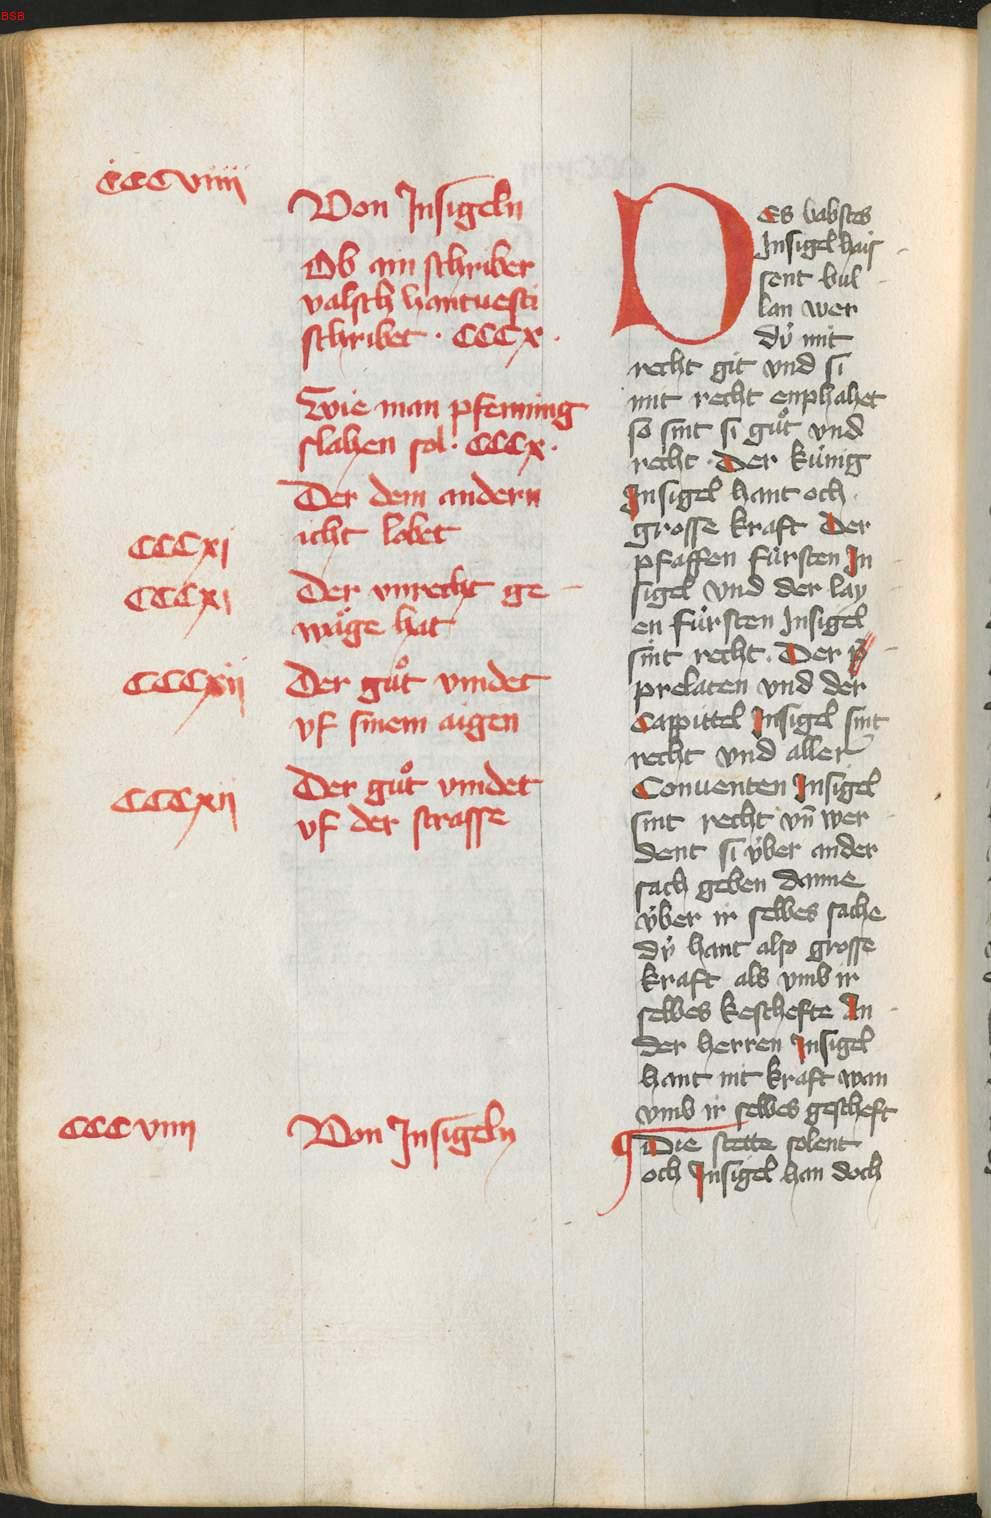 BSB
CCCviiii
Von Insigeln
Ob ain schriber
valsch hantuesti
schribet · CCCx ·
Wie man pfenning
slahen sol · CCCx ·
Der dem andern
icht lobet
CCCxi
CCCxi
Der vnrecht ge
wäge hat
CCCxii
Der gůt vindet
vf sinem aigen
CCCxii
Der gůt vindet
vf der strasse
CCCviiii
Von Insigeln
Des babstes
Insigel hais
sent bul
lan wer
dÿ mit
recht git vnd si
mit recht enphahet
so sint si gůt vnd
recht · Der künig
Insigel hant och
grosse kraft Der
pfaffen fürsten In
sigel vnd der lay
en fürsten Insigel
sint recht. Der
prelaten vnd der
Cappittel Insigel sint
recht vnd aller
Conuenten Insigel
sint recht vn̄ wer
dent si v̈ber ander
sach geben danne
v̈ber ir selbes sache
dÿ hant also grosse
kraft als vmb ir
selbes keschefte An
der herren Insigel
hant nit kraft wan
vmb ir selbes gescheft
¶ Die stette solent
och Insigel han doch